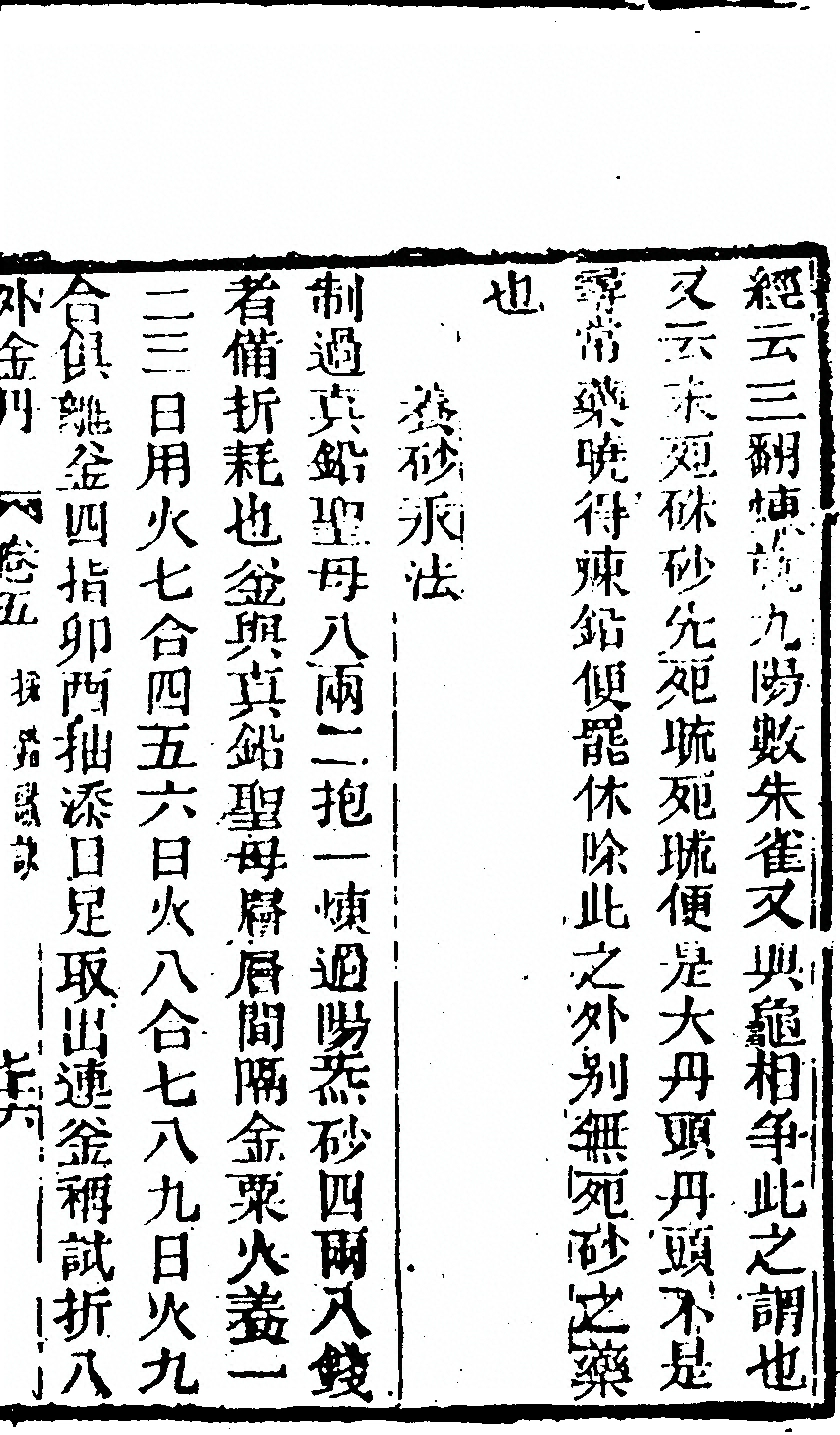 經云三翻煉就九陽數朱雀又與龜相爭此之謂也
又云未死硃砂先死硫死硫便是大丹頭丹頭不是
尋常藥曉得煉鉛便罷休除此之外别無死砂之藥
也
養砂汞法
制過真鉛聖母八兩二抱一煉過陽炁砂四兩八錢
者備折耗也釜與真鉛聖母層層間隔金粟火養一
二三日用火七合四五六日火八合七八九日火九
合俱離釜四指卯酉抽添日足取出連釜稱試折八
外金丹 卷五 七十六